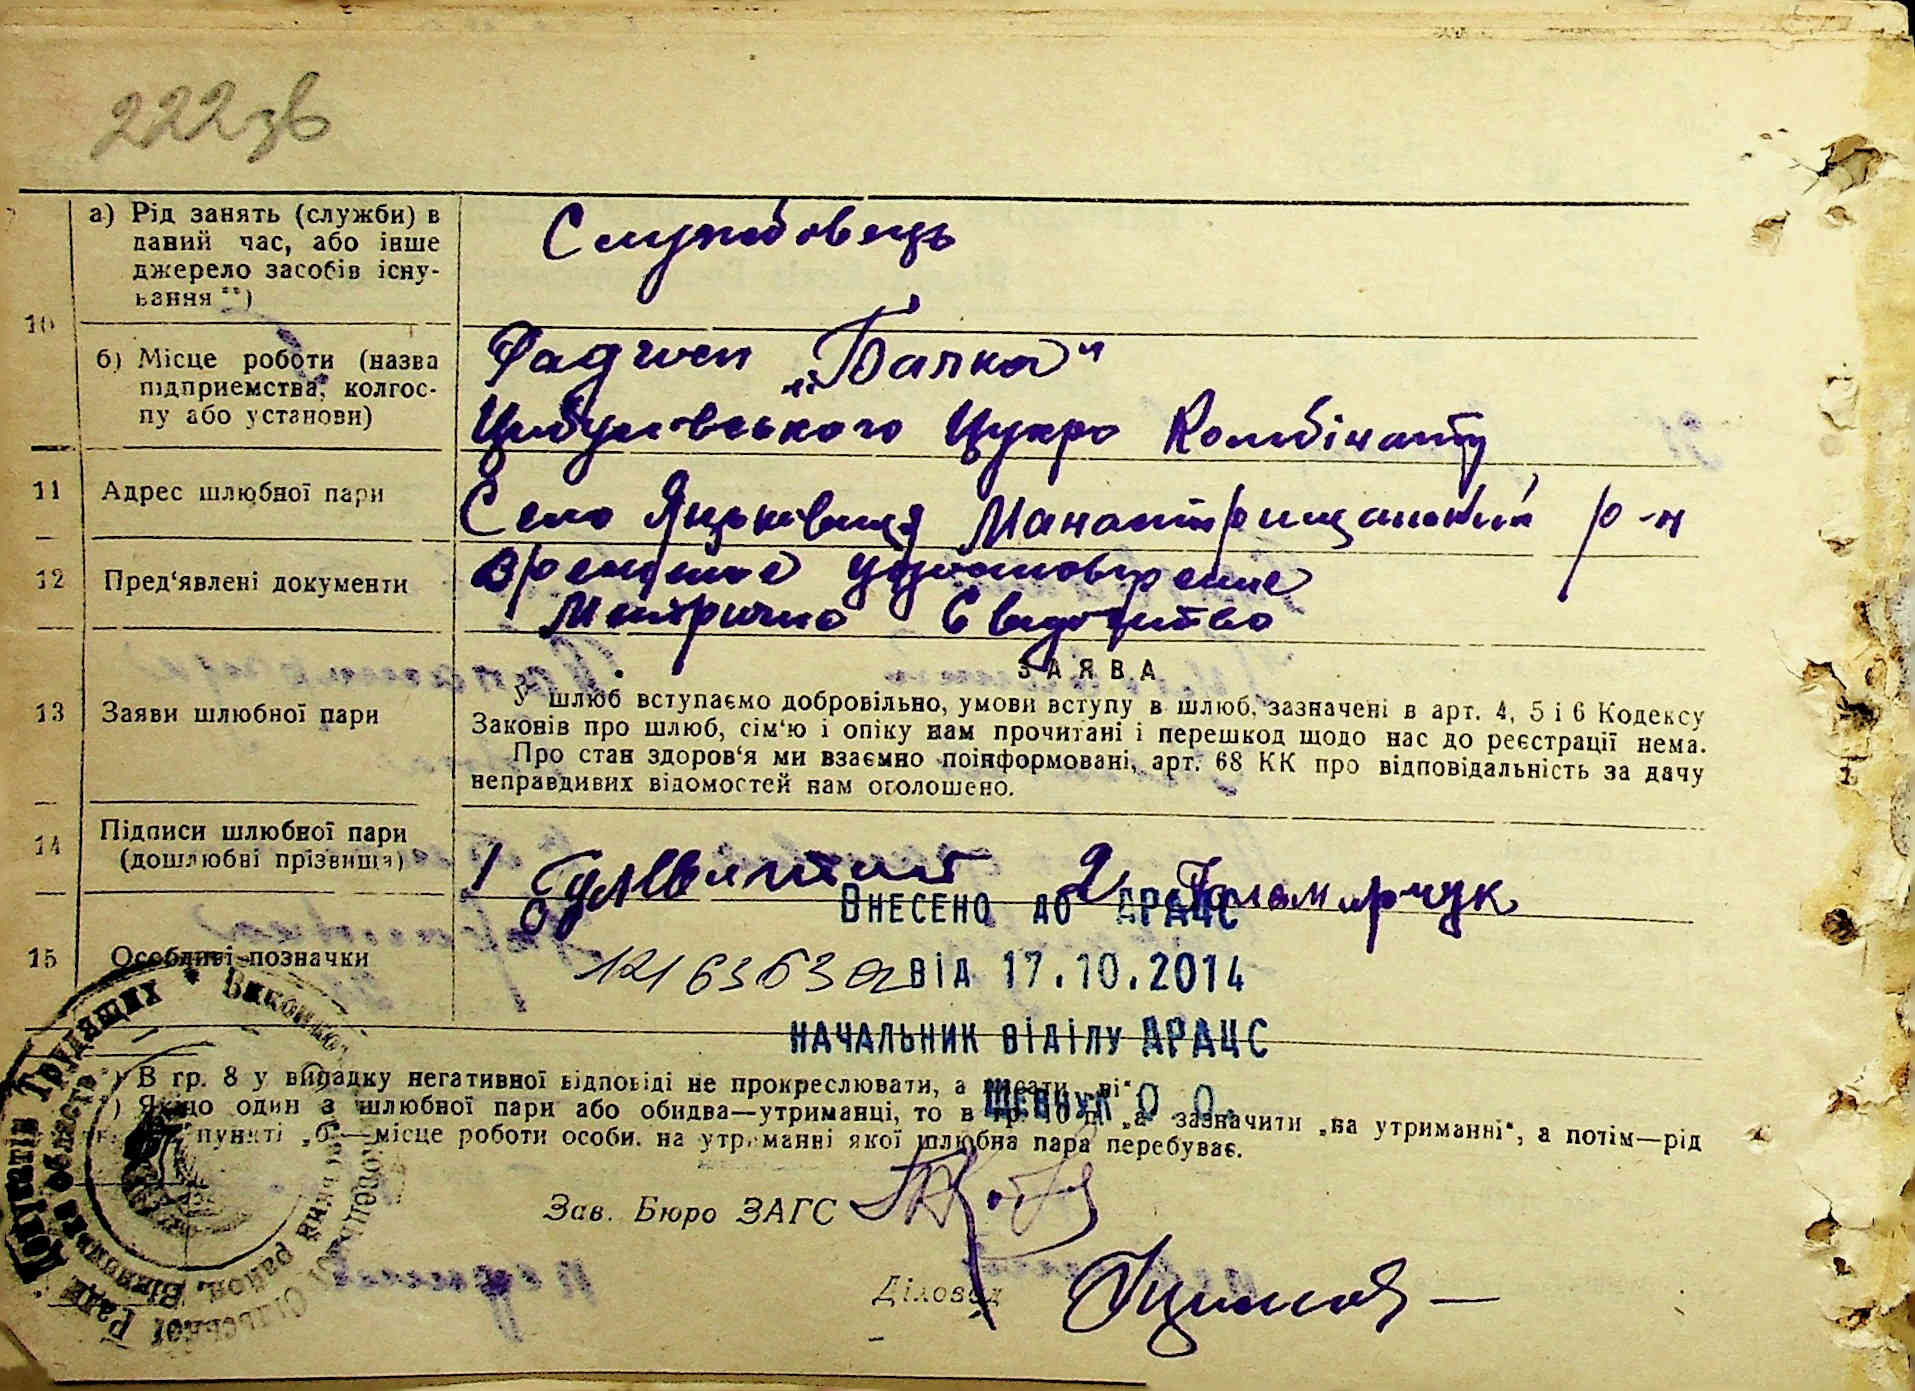 222 зв
а) Рід занять (служби) в
даний час, або інше
джерело засобів існу-
вання **)
Службовець
10
б) Місце роботи (назва
підприємства, колгос-
пу або установи)
Радгосп „Бачка"
Цибулівського Цукро Комбінату
11 Адрес шлюбної пари
Село Янківка Манастрищанский р-н
12 Пред'явлені документи
временное удостоверение
Метричне Свидоцтво
13 Заяви шлюбної пари
ЗАЯВА
У шлюб вступаємо добровільно, умови вступу в шлюб, зазначені в арт. 4, 5 і 6 Кодексу
Законів про шлюб, сім'ю і опіку нам прочитані і перешкод щодо нас до реєстрації нема.
Про стан здоров'я ми взаємно поінформовані, арт. 68 КК про відповідальність за дачу
неправдивих відомостей нам оголошено.
14 Підписи шлюбної пари
(дошлюбні прізвища)
1 2
Внесено до ДРАЦС
15 Особливі позначки
від 17.10.2014
Начальник відділу ДРАЦС
Шевчук О О.
*) В гр. 8 у випадку негативної відповіді не прокреслювати, а писати „ні"
**) Якщо один з шлюбної пари або обидва—утриманці, то в гр. 10 п. „а" зазначити „на утриманні", а потім—рід
пункті „б"—місце роботи особи. на утриманні якої шлюбна пара перебуває.
Зав. Бюро ЗАГС
Діловод